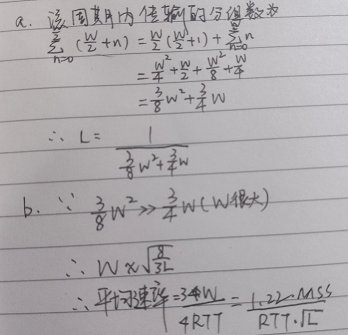 a. 该周期内传输的分组数为
\sum_{n=0}^{\frac{W}{2}} (\frac{W}{2}+n) = \frac{W}{2}(\frac{W}{2}+1) + \sum_{n=0}^{\frac{W}{2}} n
= \frac{W^2}{4} + \frac{W}{2} + \frac{W^2}{8} + \frac{W}{4}
= \frac{3}{8}W^2 + \frac{3}{4}W
∴ L = \frac{1}{\frac{3}{8}W^2 + \frac{3}{4}W}
b. ∵ \frac{3}{8}W^2 >> \frac{3}{4}W (W很大)
∴ W ≈ \sqrt{\frac{8}{3L}}
∴ 平均速率 = \frac{3W}{4RTT} = \frac{1.22·MSS}{RTT·\sqrt{L}}